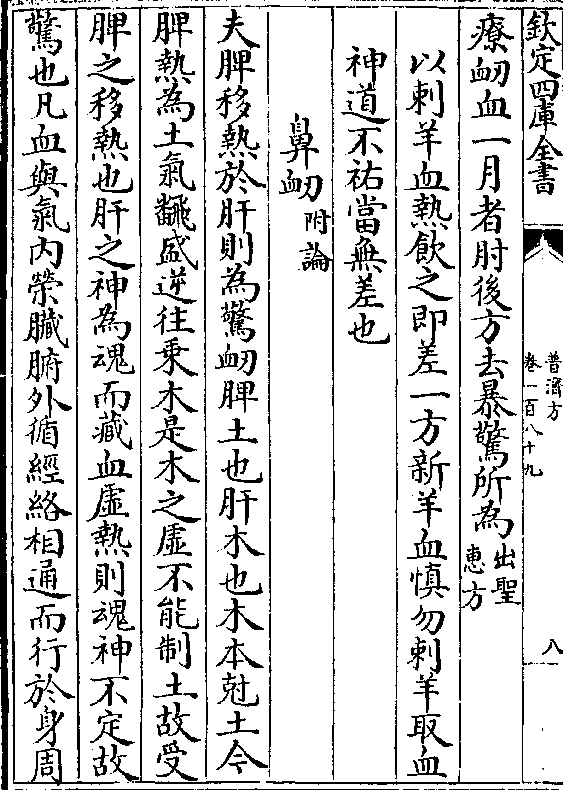 欽定四庫全書
普濟方
卷一百八十九
八
療衂血一月者肘後方去暴驚所為出聖
惠方
以刺羊血熱飲之即差一方新羊血慎勿刺羊取血
神道不祐當無差也
鼻衂附論
夫脾移熱於肝則為驚衂脾土也肝木也木本尅土今
脾熱為土氣飜盛逆往乗木是木之虛不能制土故受
脾之移熱也肝之神為魂而藏血虛熱則魂神不定故
驚也凡血與氣内榮臟腑外循經絡相通而行於身周